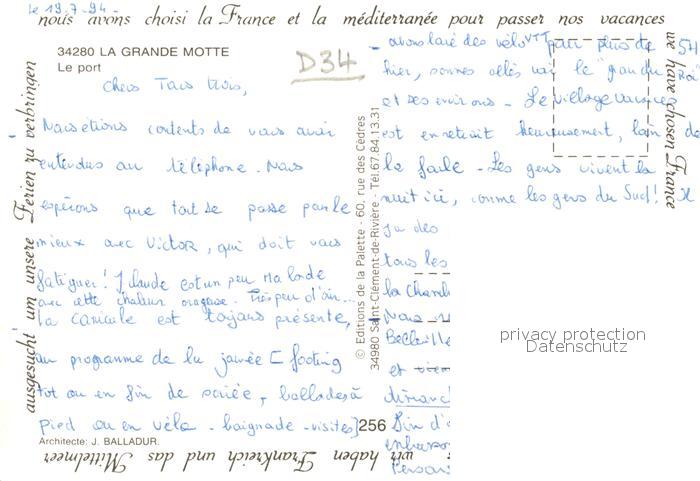 le 19-7-94-
nous avons choisi la France et la méditerranée pour passer nos vacances
34280 LA GRANDE MOTTE
Le port
D34
Chers Tous trois,
Nous étions contents de vous avoir
entendus au téléphone. Nous
espérons que tout se passe pour le
mieux avec Victor, qui doit vous
fatiguer! J Claude est un peu malade
avec cette chaleur orageuse. Très peu d'air...
La canicule est toujours présente,
au programme de la journée [ footing
tôt ou en fin de soirée, ballades à
pied ou en vélo - baignade - visites]
Architecte: J. BALLADUR.
256
ausgesucht um unsere Ferien zu verbringen
© Editions de la Palette - 60, rue des Cèdres
34980 Saint-Clément-de-Rivière - Tél. 67.84.13.31
- avons loué des vélos VTT pour plus de
hier, sommes allés voir le "grau du Roi"
et ses environs - Le village vacances
est en retrait heureusement, loin de
la foule - Les gens vivent la
nuit ici, comme les gens du Sud!
tous les
la chamb
Nous
et
dimanc
Fin d'
embrass
we have chosen France
wir haben Frankreich und das Mittelmeer
privacy protection
Datenschutz